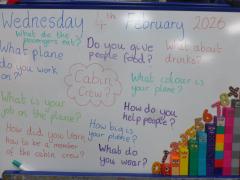 Wednesday 4th February 2026
What do the
passengers eat?
What plane
do you work
on?
Do you give
people food?
What about
drinks?
Cabin
Crew?
What colour is
your plane?
What is your
job on the plane?
How do you
help people?
How did you learn
how to be a member
of the cabin crew?
How big is
your plane?
What do
you wear?